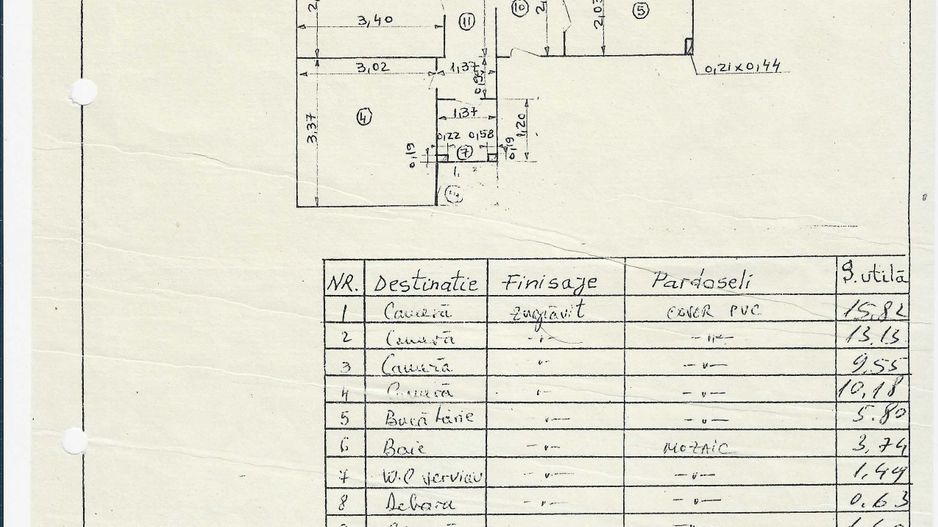 3,40
11
10
2,03
5
3,02
1,37
0,95
0,21x0,44
4
3,37
1,37
0,22 0,58
1,20
0,19
7
0,19
NR. Destinatie Finisaje Pardoseli S.utilă
1 Cameră zugrăvit COVOR PVC 15,82
2 Cameră -"- -"- 13.13
3 Cameră " -"- 9,55
4 Cameră -"- -"- 10,18
5 Bucătărie -"- -"- 5.80
6 Baie -"- MOZAIC 3,74
7 W.C serviciu -"- -"- 1,49
8 Debara -"- -"- 0,63